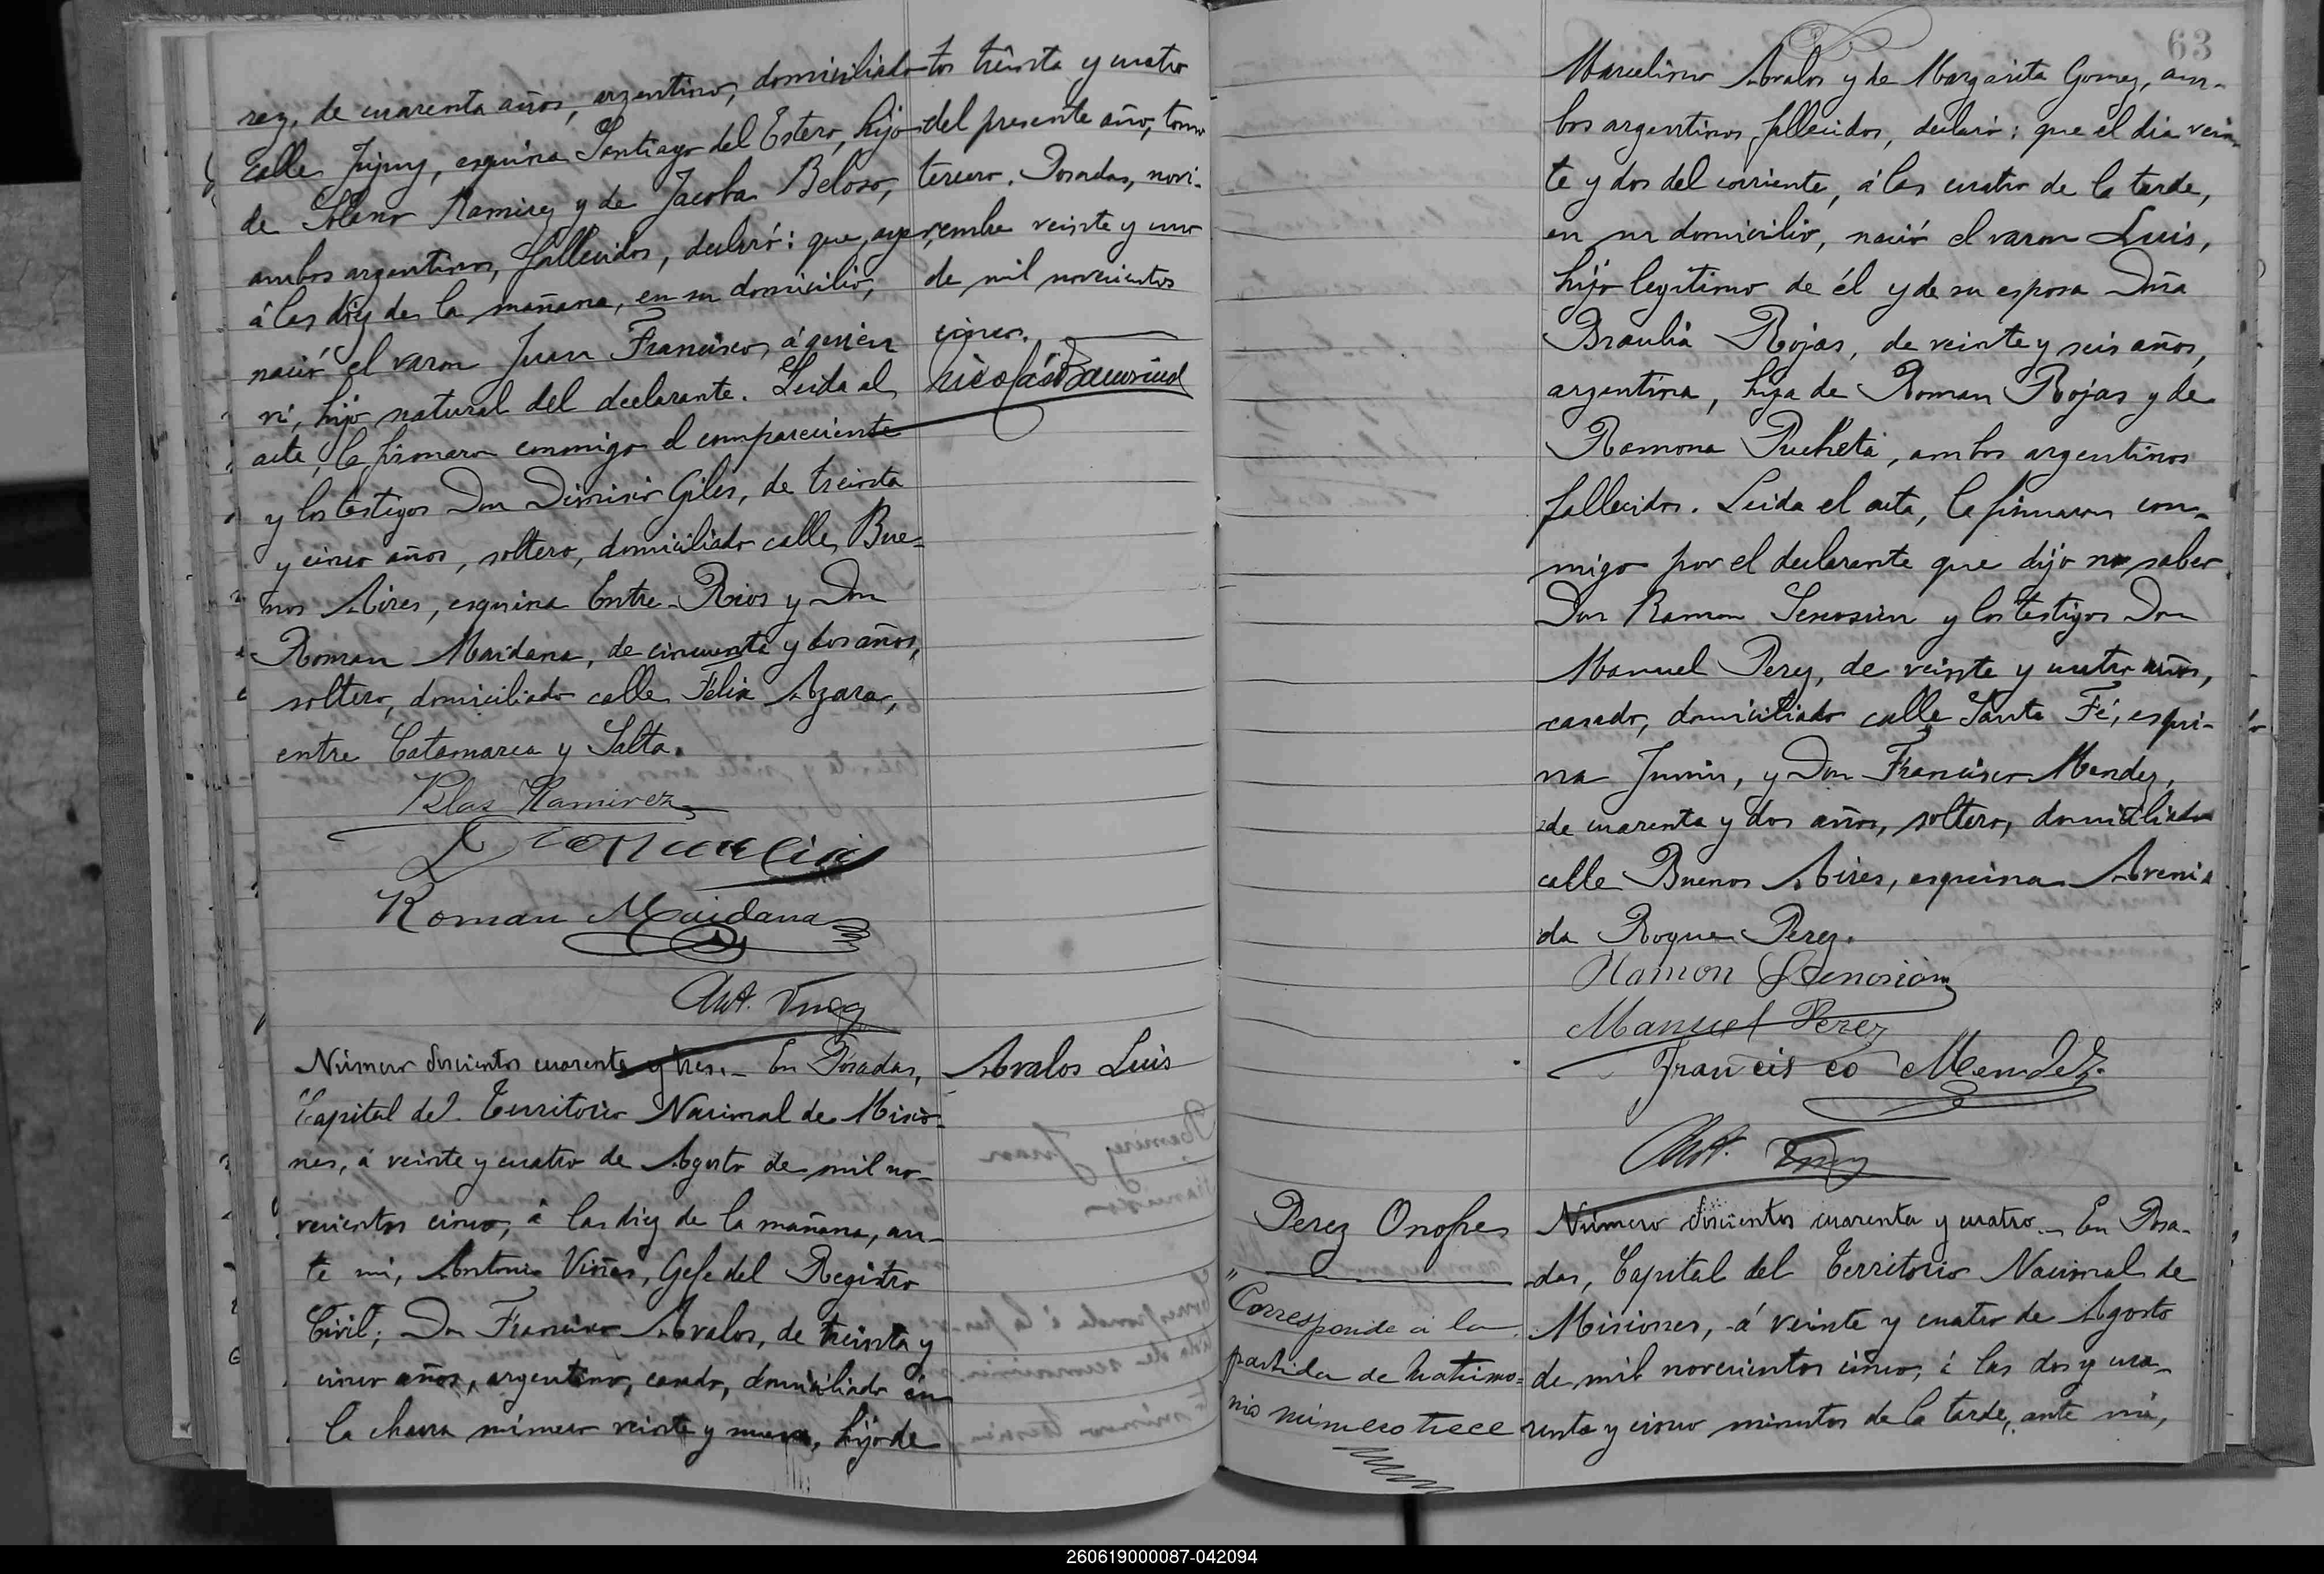 rez, de cuarenta años, argentino, domiciliado
calle Jujuy, esquina Santiago del Estero, hijo
de Solano Ramirez y de Jacoba Beloso,
ambos argentinos, fallecidos, declaró: que, ayer,
á las diez de la mañana, en su domicilio,
nació el varon Juan Francisco, á quien
ví, hijo natural del declarante. Leida el
acta, la firmaron conmigo el compareciente
y los testigos Don Dionisio Giles, de treinta
y cinco años, soltero, domiciliado calle Bue-
nos Aires, esquina Entre-Rios y Don
Roman Maidana, de cincuenta y dos años,
soltero, domiciliado calle Félix Azara,
entre Catamarca y Salta.
Blas Ramirez
Roman Maidana
Ant. Viñas
tos treinta y cuatro
del presente año, tomo
tercero. Posadas, novi-
embre veinte y uno
de mil novecientos
cinco.
Número doscientos cuarenta y tres.- En Posadas,
Capital del Territorio Nacional de Misio-
nes, á veinte y cuatro de Agosto de mil no-
vecientos cinco, á las diez de la mañana, an-
te mí, Antonio Viñas, Gefe del Registro
Civil; Don Francisco Avalos, de treinta y
cinco años, argentino, casado, domiciliado en
la chacra número veinte y nueve, hijo de
Avalos Luis
63
Marcelino Avalos y de Margarita Gomez, am-
bos argentinos, fallecidos, declaró: que el dia vein
te y dos del corriente, á las cuatro de la tarde,
en su domicilio, nació el varon Luis,
hijo legítimo de él y de su esposa Doña
Braulia Rojas, de veinte y seis años,
argentina, hija de Roman Rojas y de
Ramona Pucheta, ambos argentinos
fallecidos. Leida el acta, la firmaron con-
migo por el declarante que dijo no saber
Don Ramon Senosian y los testigos Don
Manuel Perez, de veinte y cuatro años,
casado, domiciliado calle Santa Fé, esqui-
na Junin, y Don Francisco Mendez,
de cuarenta y dos años, soltero, domiciliado
calle Buenos Aires, esquina Aveni
da Roque Perez.
Ramon Senosian
Manuel Perez
Francisco Mendez
Ant. Viñas
Perez Onofre
"Corresponde á la
partida de matrimo=
nio número trece
Número doscientos cuarenta y cuatro.- En Posa-
das, Capital del Territorio Nacional de
Misiones, á veinte y cuatro de Agosto
de mil novecientos cinco, á las dos y cua-
renta y cinco minutos de la tarde, ante mí,
260619000087-042094